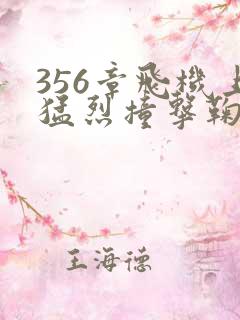 356章飛機上
猛烈撞擊鞠
王海德